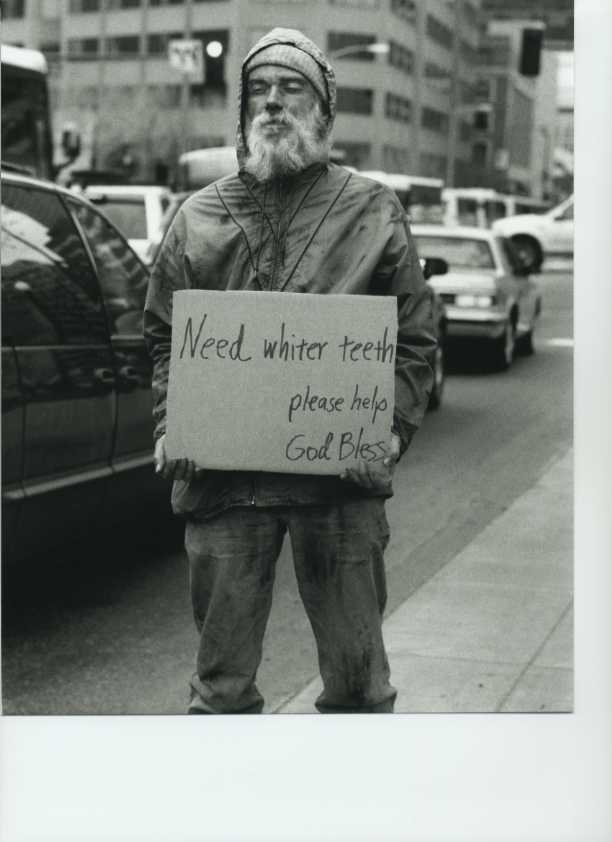 Need whiter teeth
please help
God Bless